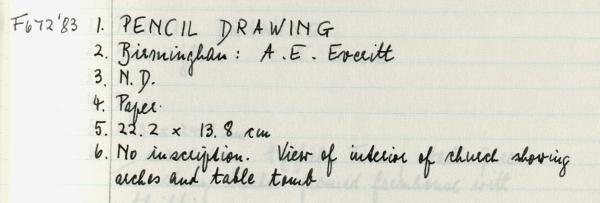 F672'83 1. PENCIL DRAWING
2. Birmingham: A.E. Everitt
3. N.D.
4. Paper.
5. 22.2 x 13.8 cm
6. No inscription. View of interior of church showing
arches and table tomb